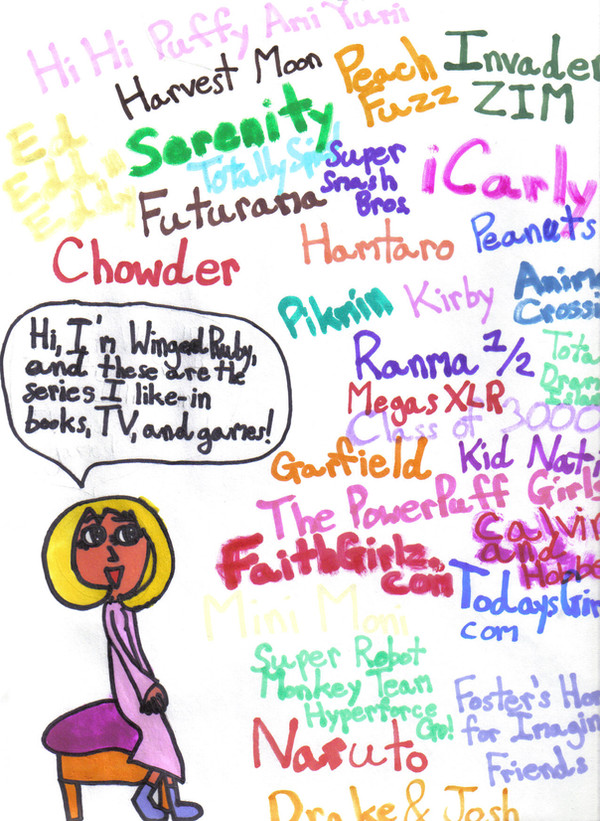 Hi Hi Puffy Ami Yumi
Harvest Moon
Peach
Fuzz
Invader
ZIM
Ed
Edd n
Eddy
Serenity
Totally Spies!
Super
Smash
Bros.
iCarly
Futurama
Hamtaro
Peanuts
Chowder
Pikmin
Kirby
Anim
Crossi
Hi, I'm WingedRuby,
and these are the
series I like-in
books, TV, and games!
Ranma 1/2
Tota
Dram
Islan
Megas XLR
Class of 3000
Garfield
Kid Nati
The PowerPuff Girls
Calvin
and
Hobbe
FaithGirlz.
com
TodaysGir
com
Mini Moni
Super Robot
Monkey Team
Hyperforce
Go!
Foster's Hom
for Imagin
Friends
Naruto
Drake & Josh